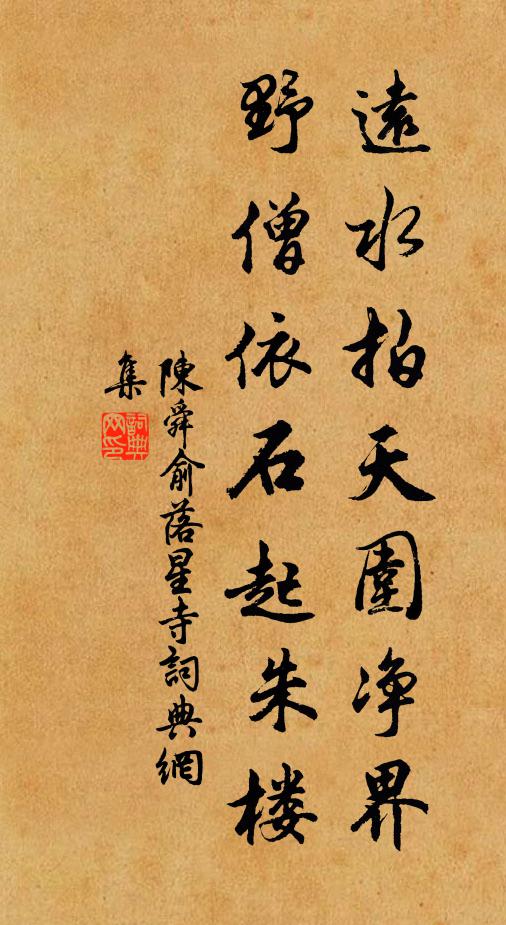 遠水拍天圍净界
野僧依石起朱楼
陳舜俞落星寺詞典網
集
詞典網印